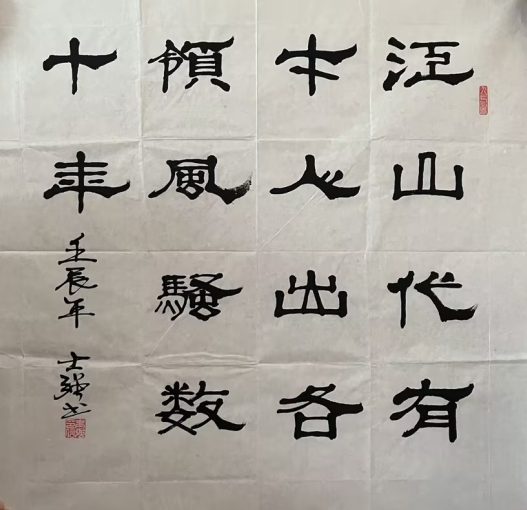 江山代有
才人出各
領風騷数
十年
壬辰年 士强书